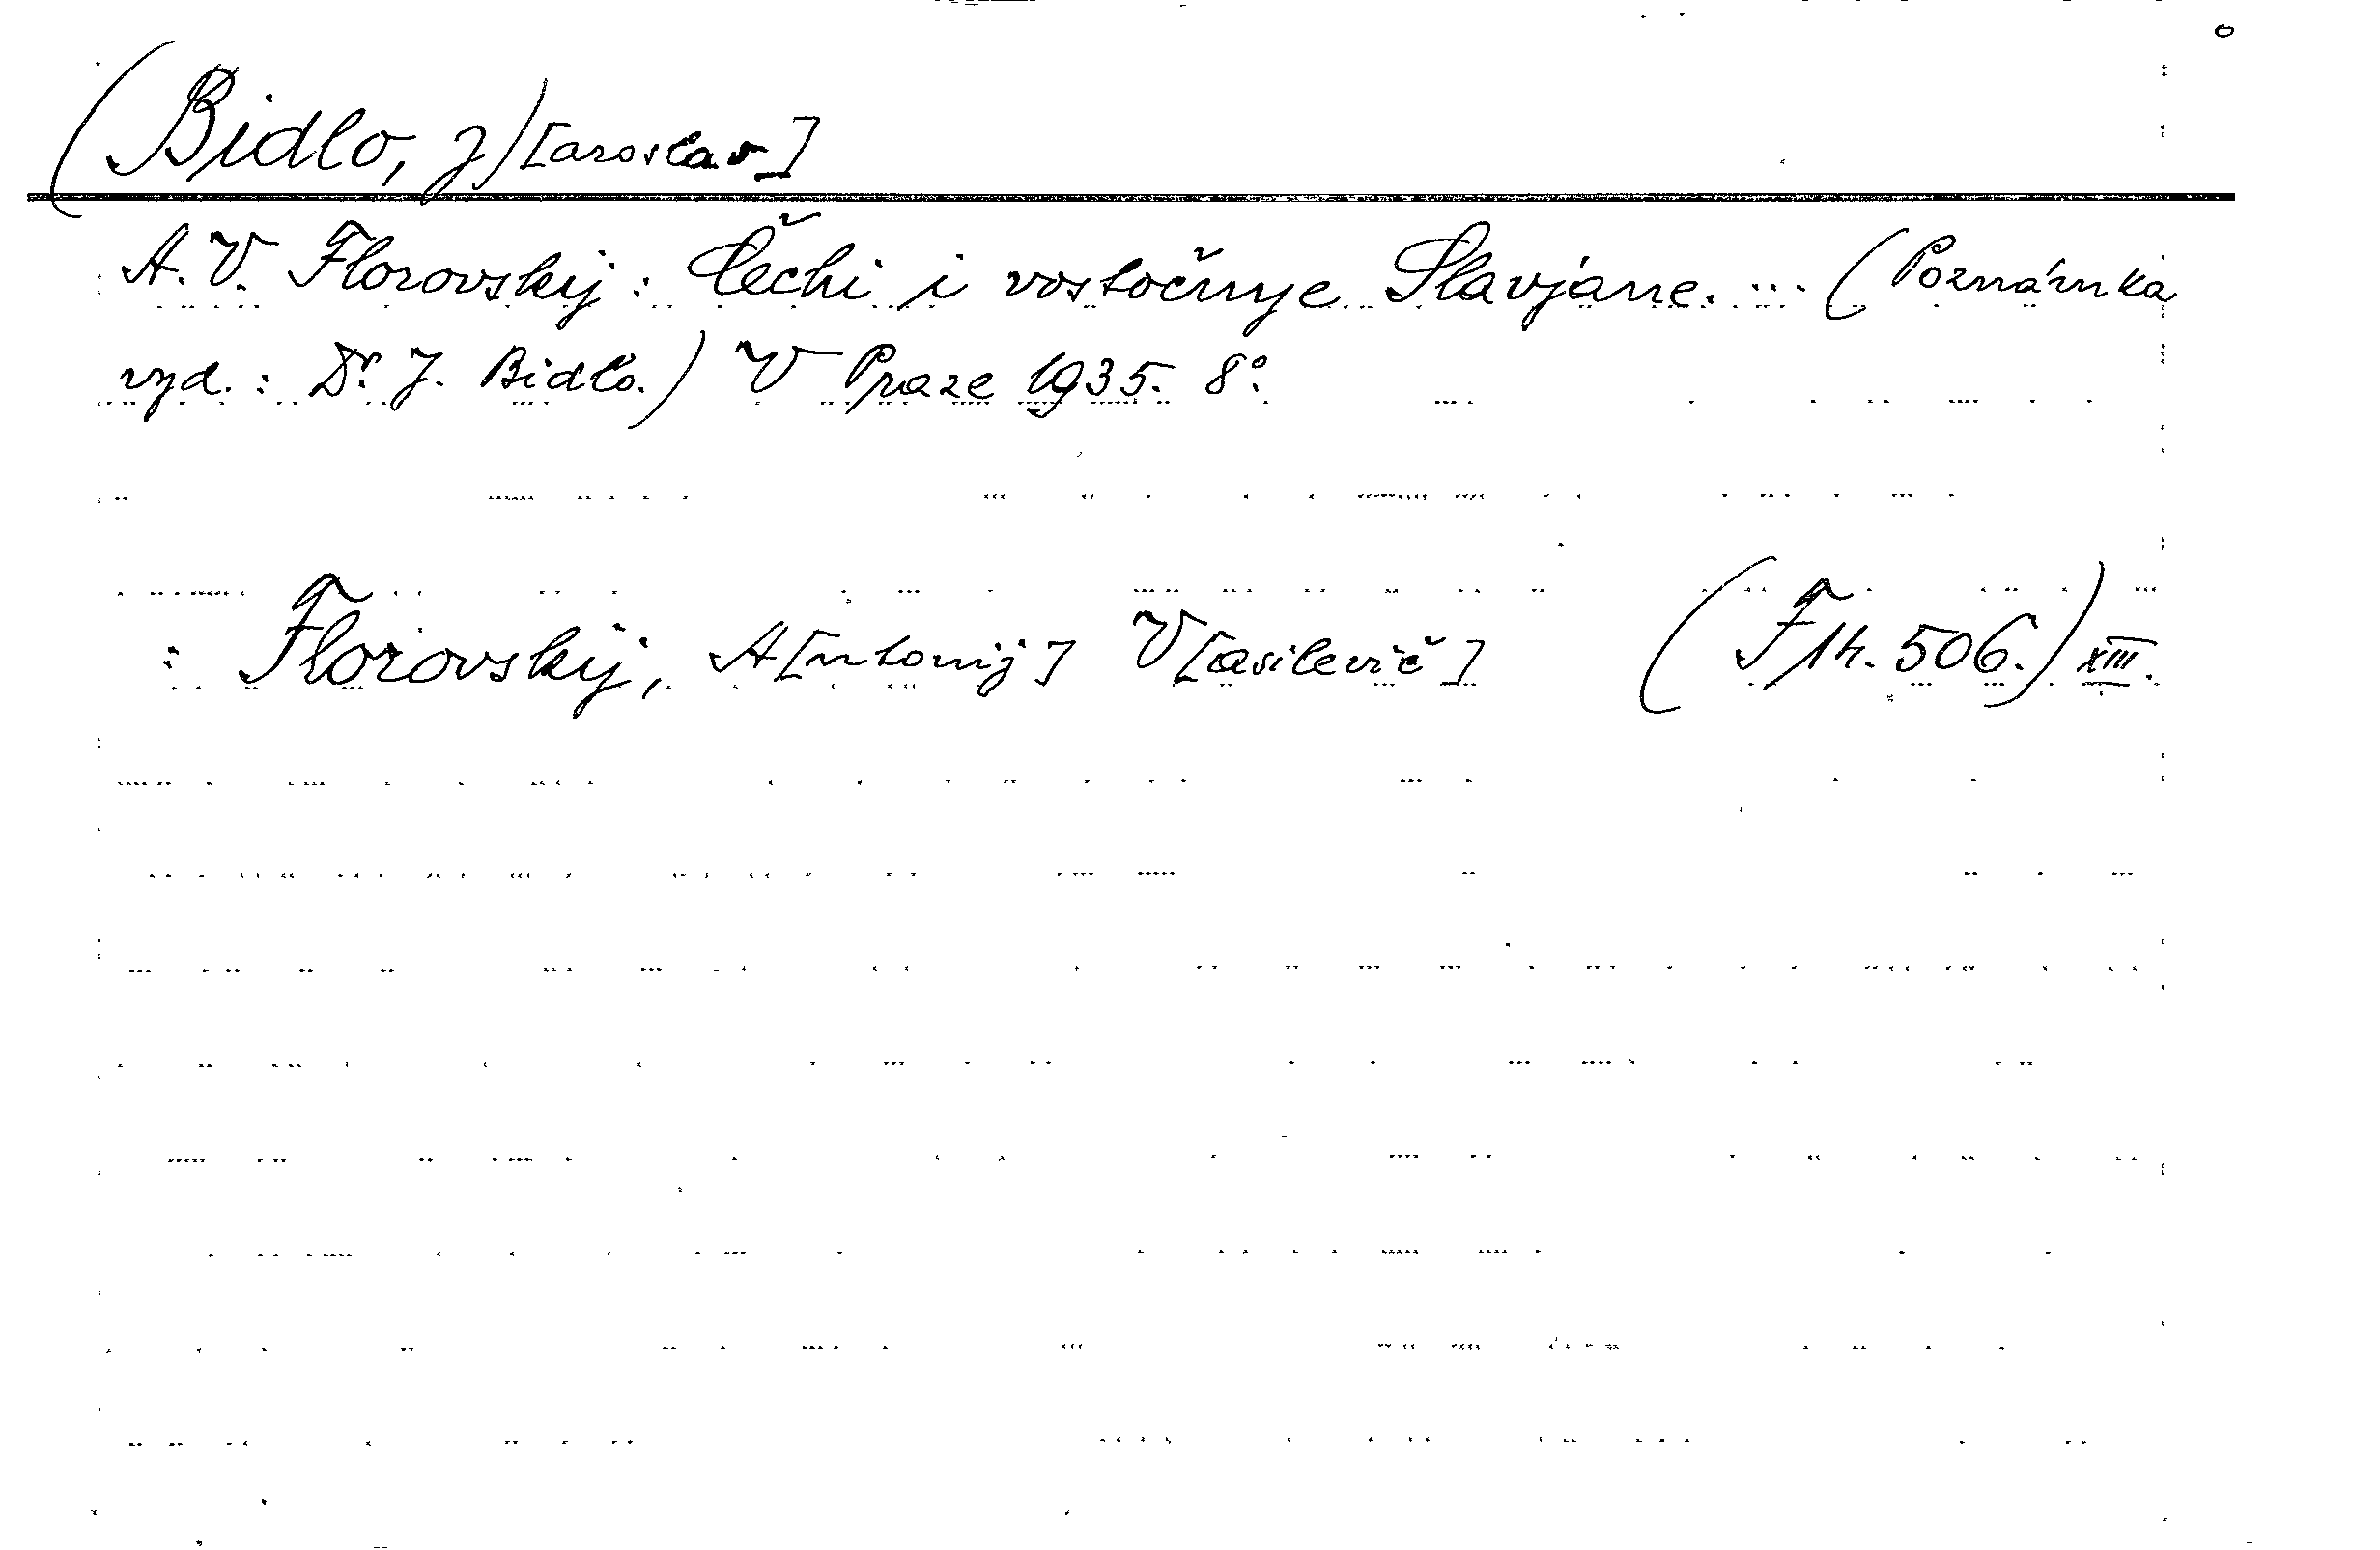 (Bidlo, J)[aroslav]
A. V. Florovskij: Čechi i vostočnye Slavjáne. ... (Poznámka
vyd.: Dr. J. Bidlo.) V Praze 1935. 8°.
: Florovskij, A[ntonij] V[asilevič] (F 14. 506.) XIII.